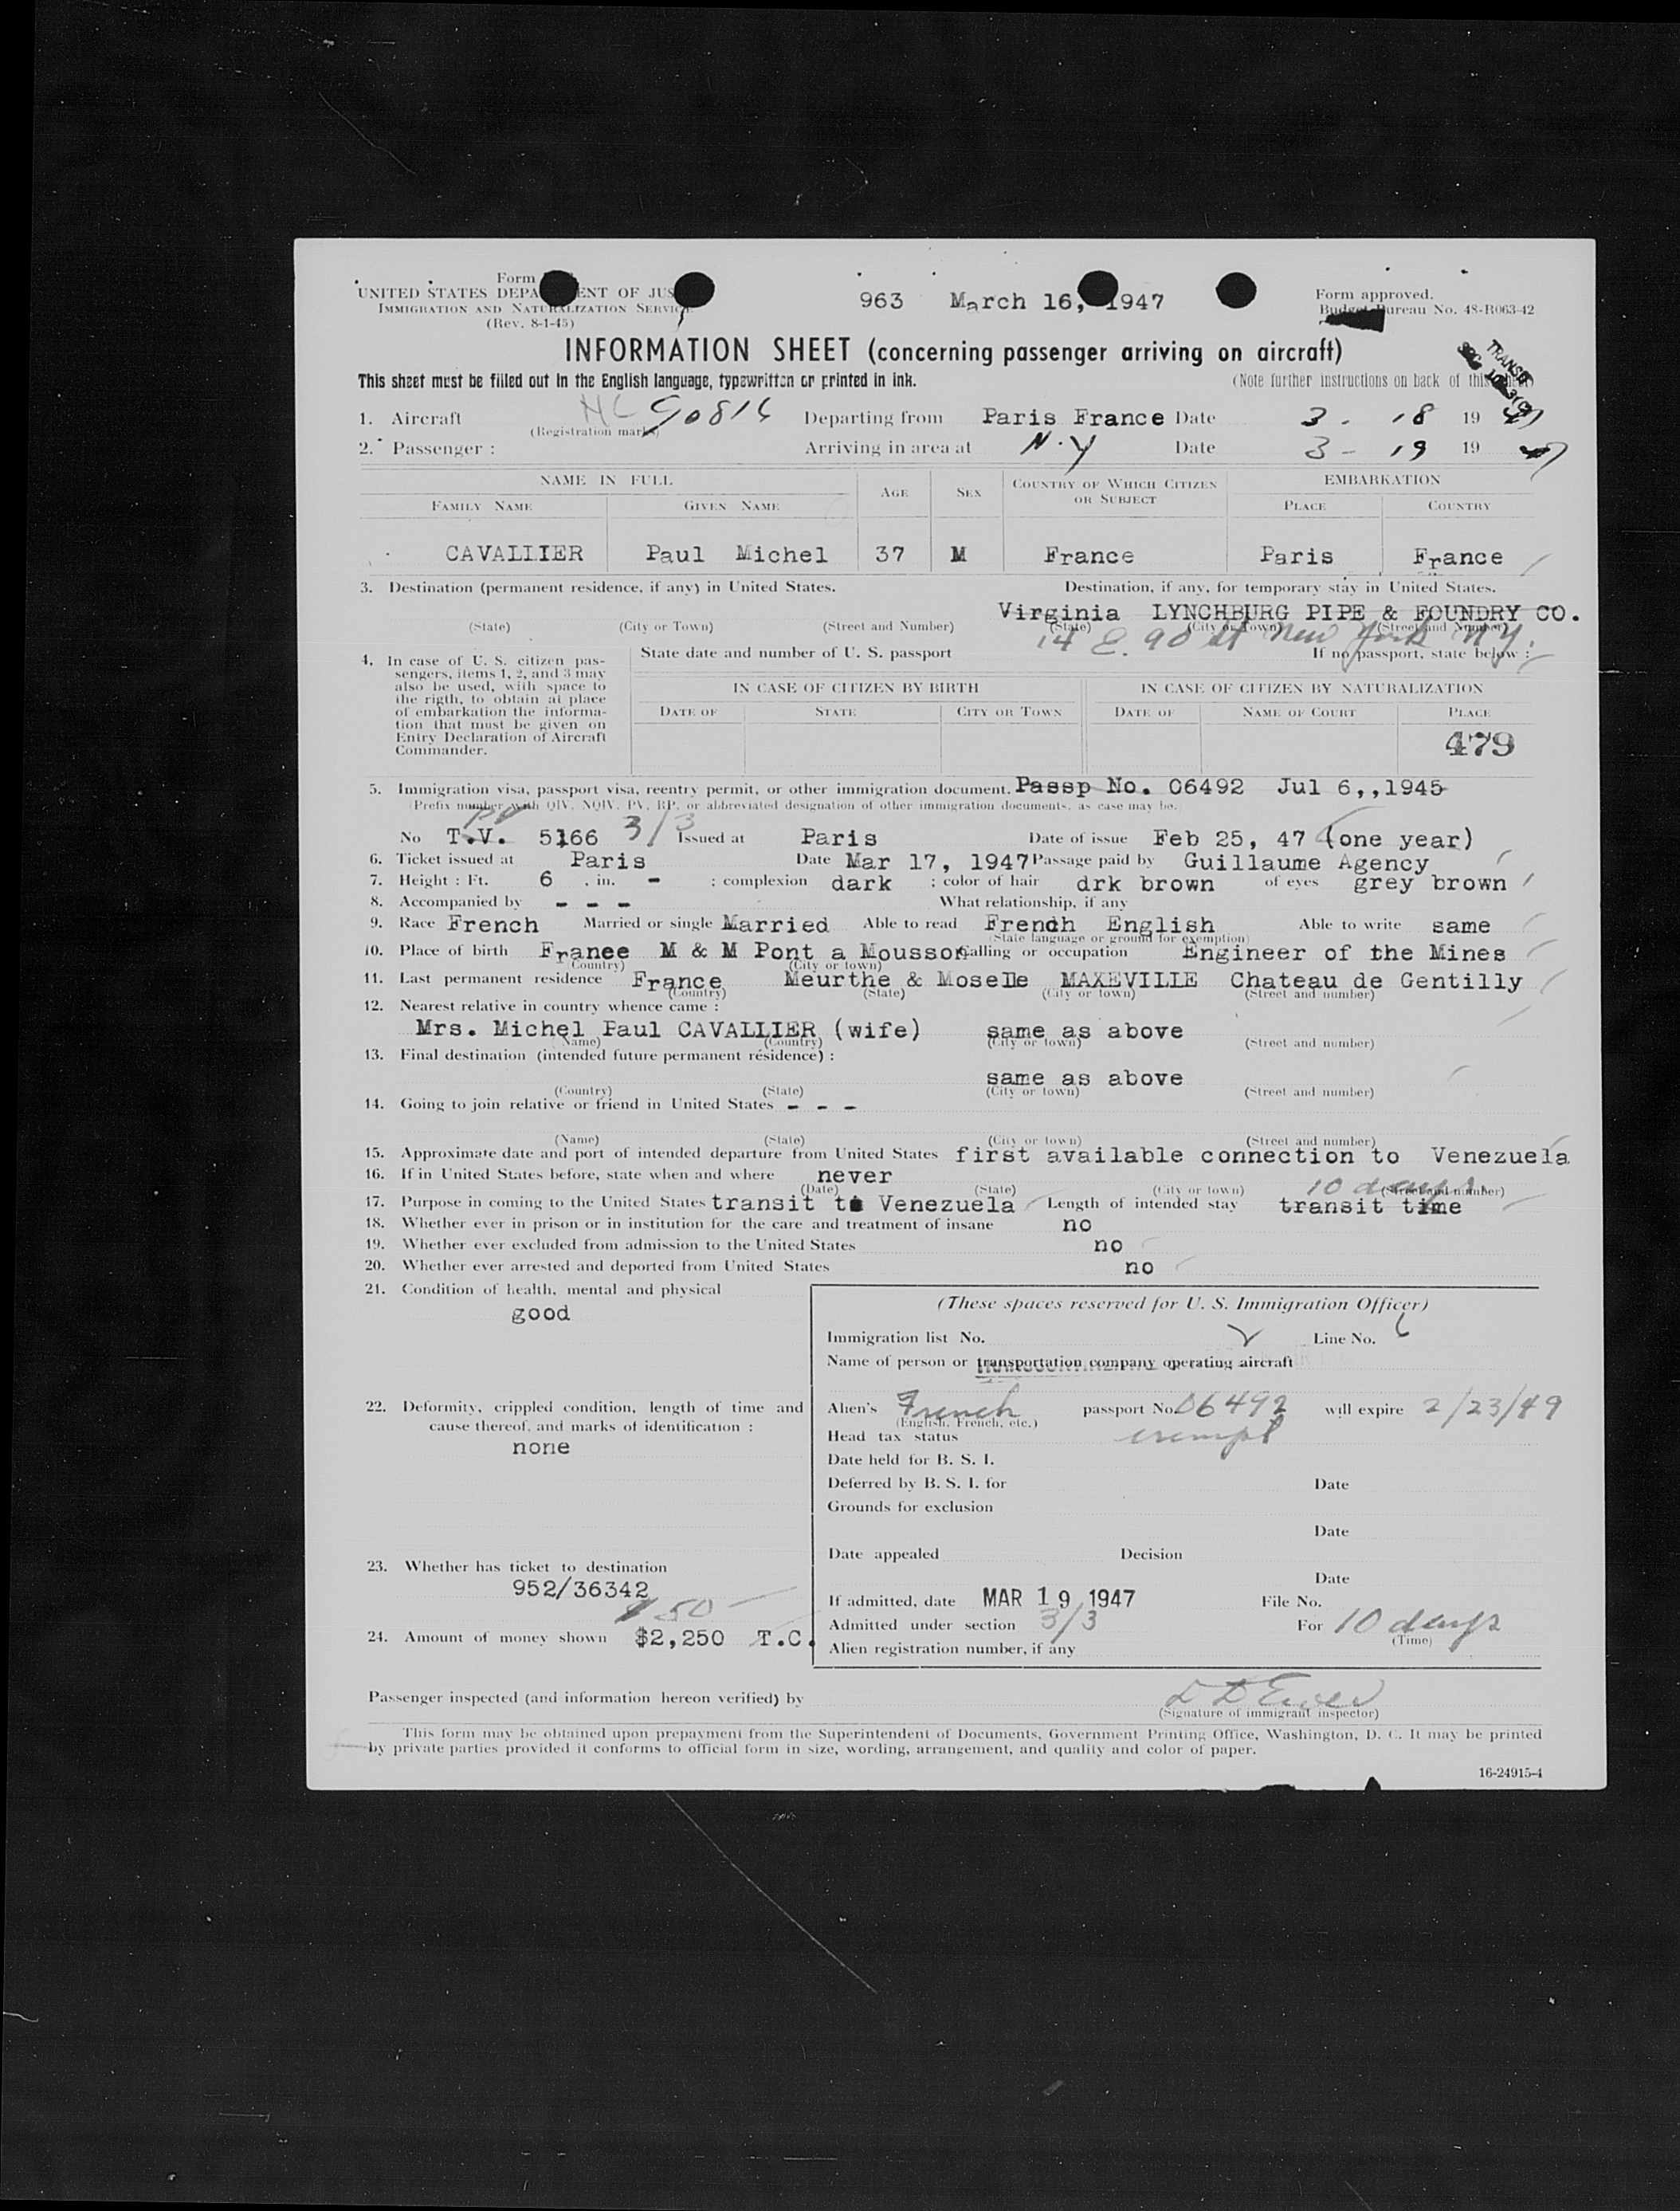 Form
UNITED STATES DEPA ENT OF JUS
IMMIGRATION AND NATURALIZATION SERVICE
(Rev. 8-1-45)
963 March 16, 1947
Form approved.
Budget Bureau No. 48-R063-42
INFORMATION SHEET (concerning passenger arriving on aircraft)
This sheet must be filled out in the English language, typewritten or printed in ink.
(Note further instructions on back of this sheet)
TRANSIT
SEC 10 3(3)
1. Aircraft NC 90816 Departing from Paris France Date 3 - 18 19 47
(Registration marks)
2. Passenger : Arriving in area at N.Y Date 3 - 19 19 47
NAME IN FULL AGE SEX COUNTRY OF WHICH CITIZEN OR SUBJECT EMBARKATION
FAMILY NAME GIVEN NAME PLACE COUNTRY
CAVALLIER Paul Michel 37 M France Paris France
3. Destination (permanent residence, if any) in United States. Destination, if any, for temporary stay in United States.
Virginia LYNCHBURG PIPE & FOUNDRY CO.
(State) (City or Town) (Street and Number) (State) (City or Town) (Street and Number)
14 E. 90 St New York NY.
4. In case of U. S. citizen pas-
sengers, items 1, 2, and 3 may
also be used, with space to
the rigth, to obtain at place
of embarkation the informa-
tion that must be given on
Entry Declaration of Aircraft
Commander.
State date and number of U. S. passport If no passport, state below :
IN CASE OF CITIZEN BY BIRTH IN CASE OF CITIZEN BY NATURALIZATION
DATE OF STATE CITY OR TOWN DATE OF NAME OF COURT PLACE
479
5. Immigration visa, passport visa, reentry permit, or other immigration document. Passp No. 06492 Jul 6,,1945
(Prefix number with QIV, NQIV, PV, RP, or abbreviated designation of other immigration documents, as case may be.
PV
No T.V. 5166 3/3 Issued at Paris Date of issue Feb 25, 47 (one year)
6. Ticket issued at Paris Date Mar 17, 1947 Passage paid by Guillaume Agency
7. Height : Ft. 6 . in. - ; complexion dark ; color of hair drk brown of eyes grey brown
8. Accompanied by - - - What relationship, if any
9. Race French Married or single Married Able to read French English Able to write same
(State language or ground for exemption)
10. Place of birth Franee M & M Pont a Mousson Calling or occupation Engineer of the Mines
(Country) (City or town)
11. Last permanent residence France Meurthe & Moselle MAXEVILLE Chateau de Gentilly
(Country) (State) (City or town) (Street and number)
12. Nearest relative in country whence came :
Mrs. Michel Paul CAVALLIER (wife) same as above
(Name) (Country) (City or town) (Street and number)
13. Final destination (intended future permanent résidence) :
same as above
(Country) (State) (City or town) (Street and number)
14. Going to join relative or friend in United States - - -
(Name) (State) (City or town) (Street and number)
15. Approximate date and port of intended departure from United States first available connection to Venezuela
16. If in United States before, state when and where never
(Date) (State) (City or town) (Street and number)
10 days
17. Purpose in coming to the United States transit to Venezuela Length of intended stay transit time
18. Whether ever in prison or in institution for the care and treatment of insane no
19. Whether ever excluded from admission to the United States no
20. Whether ever arrested and deported from United States no
21. Condition of health, mental and physical
good
22. Deformity, crippled condition, length of time and
cause thereof, and marks of identification :
none
23. Whether has ticket to destination
952/36342
$50
24. Amount of money shown $2,250 T.C.
(These spaces reserved for U. S. Immigration Officer)
Immigration list No. Line No. 6
Name of person or transportation company operating aircraft
Alien's French passport No. 06492 will expire 2/23/49
(English, French, etc.)
Head tax status exempt
Date held for B. S. I.
Deferred by B. S. I. for Date
Grounds for exclusion
Date
Date appealed Decision
Date
If admitted, date MAR 19 1947 File No.
Admitted under section 3/3 For 10 days
(Time)
Alien registration number, if any
Passenger inspected (and information hereon verified) by
(Signature of immigrant inspector)
This form may be obtained upon prepayment from the Superintendent of Documents, Government Printing Office, Washington, D. C. It may be printed
by private parties provided it conforms to official form in size, wording, arrangement, and quality and color of paper.
16-24915-4